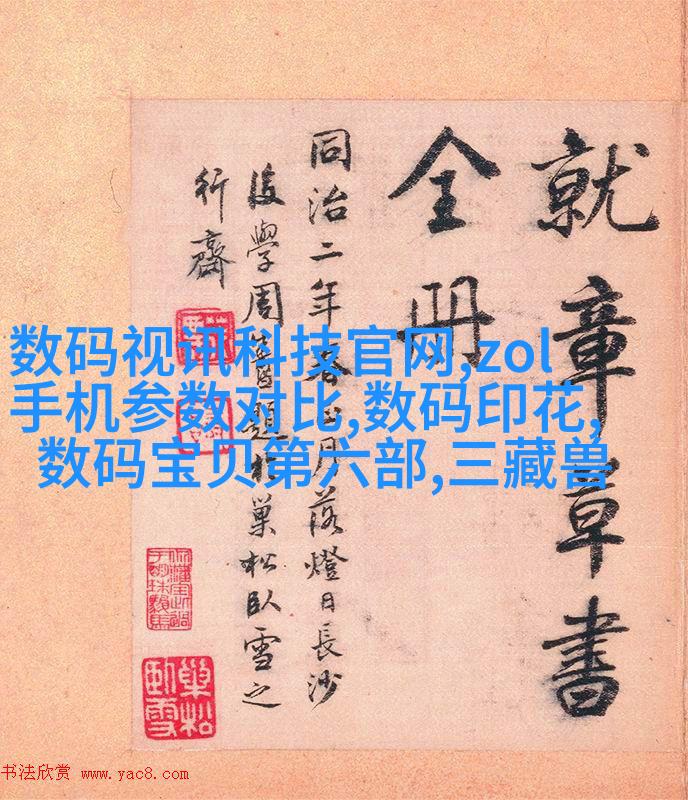 就章草書
全册
同治二年春正月落燈日長沙
後學周壽昌題於巢松臥雪之
行齋
巢松臥雪
数码视讯科技官网,zol
手机参数对比,数码印花,
数码宝贝第六部,三藏兽
书法欣赏 www.yac8.com